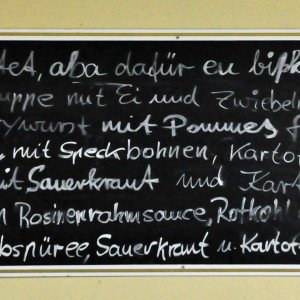 tet, aba dafür eu bißc
uppe mit Ei und Zwiebel
rywurst mit Pommes f
, mit Speckbohnen, Karto
it Sauerkraut und Kart
n Rosinenrahmsauce, Rotkohl
bspüree, Sauerkraut u. Kartof